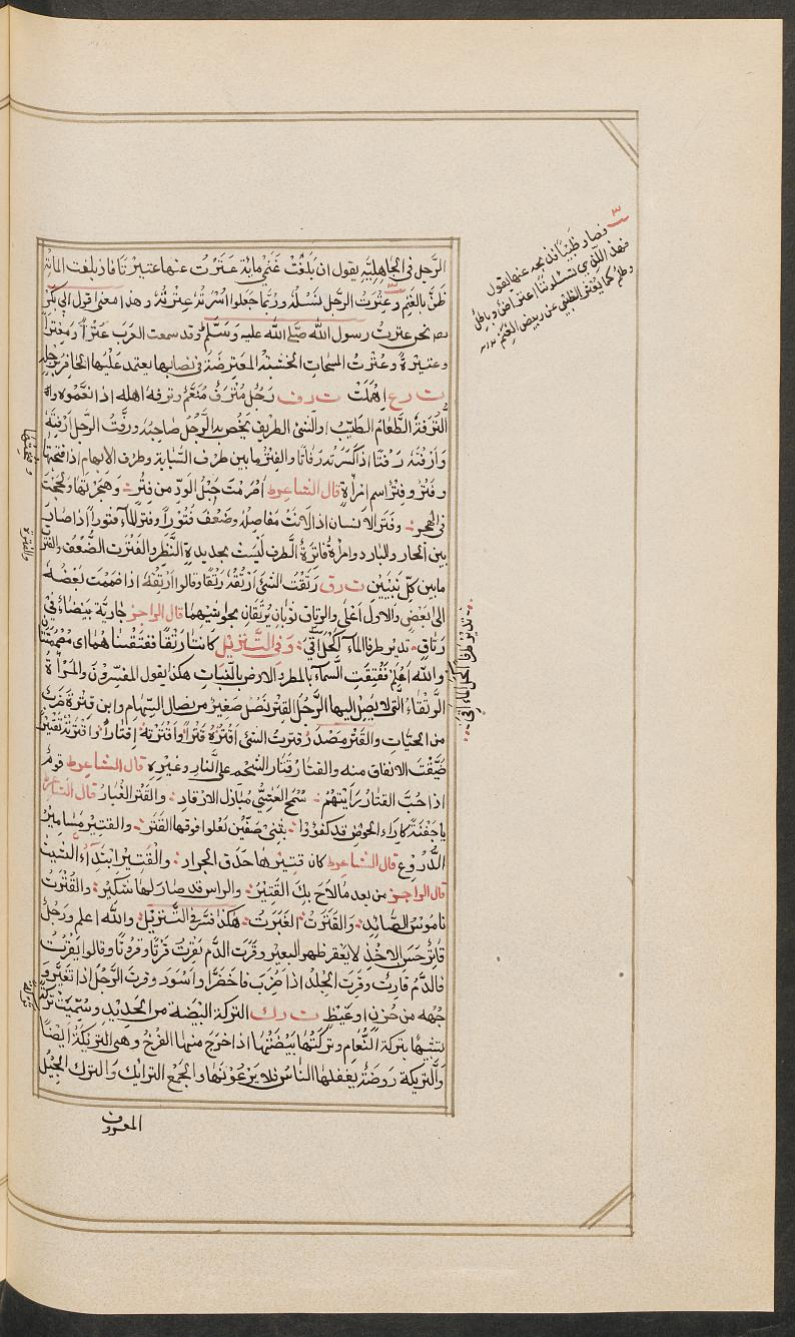 الرَّجل في الجاهليّة يقول ان بَلَغَتْ غَنَمي مايةً عَتَرْت عنها عتيرَتًا فاذ بلغت الماية
ظنّ بالغنم وعِتْرتُ الرجل نسْلُه وربّما جعلوا أُسْرَتَه عِتْرتَه وهذا معنى قول ابي بكر
نحن عترت رسول الله صلى الله عليه وسلم وقد سمعت العَرَب عَتْراً ومِعْتَراً
وعتيرة وعِتْرتُ المسحات الخشبة المعترضة في نصابها يعتمد عليها الحافر برجله
ت ر ع اهملت ت ر ف رَجُل مُتْرَفٌ مُنعّم وترفه اهله اذا نَعّموه
التُّرْفَةُ الطَّعام الطيّب والشئ الطريف يَخُص به الرَّجُل صَاحِبَه ورَفَتُّ الرجل أرْفِتُه
وَأرْفُتُه رَفتًا اذا كَسَرته رفاتًا والفِتْرُ ما بين طرف السَّبّابة وطرف الابهام اذا فتحتهما
وفَتْرٌ وفِتْرٌ اسم امرأة قال الشاعر أصَرَمْتَ حَبْلَ الوُدّ من فِتْرٍ وهَجَرْتَها ولَجَجْتَ
في الهجر وفَتَر الانسان اذا لانَتْ مفاصله وضَعُف فُتُوراً وفتر الماء فتوراً اذا صار
بين الحار والبارد وامرأة فاترة الطَّرف ليست بحديدة النَّظَر والفَتْرت الضُّعف والفترة
ما بين كلّ نبيّين ت ر ق رَتَقْتُ الشئ أرْتُقُه رَتْقًا وقالوا ارْتِقُهُ اذا ضمَمت بَعْضَه
الى بَعْض والاول أعلى والرِّتاق ثوبان يُرْتَقان بحواشيهما قال الراجز جارية بَيْضَاء في
رِتَاقِ تدير طرفا اكحل المآقي وفي التَّنزيل كانتا رتْقًا ففتقناهما اى مُصْمَتتًا
والله أعلم ففتقت السماء بالمطر والارض بالنبات هكذا يقول المفسّرون والمَرأة
الرَّتقاءُ الّتى لا يصل اليها الرَّجُل القِتْرُ نَصْل صَغِير من نصال السهام وابن قِتْرة ضرب
من الحيّات والقَتْر مصدر قترتُ الشئ أقْتُرُهُ قَتْراً واقترتُه إقتاراً وقترته تقتيراً
ضيّقت الانفاق منه والقتار قُتار الشحم على النار وغيره قال الشاعر قوم
اذا حُبَّ القتارُ رَأيْتَهُمْ سُمُحَ العَشِيّ مُباذل الارفاد والقَتَرُ الغُبارُ قال الشاعر
يا جَفْنَةً كازاء الحوض قد كفؤوا بقني صِفّين يَعْلوا فوقها القَتَرُ والقتير مَسامير
الدُّرُوع قال الشاعر كان قتيرها حَدَق الجراد والقَتير ابتداء الشيب
قال الراجز من بعد ما لاحَ بك القَتير والراس قد صار لها شكير والقُتْرَتُ
ناموسُ الصَّائد والقَتَرَتُ الغَبَرتُ هكذا فسّر في التنزيل والله اعلم ورجل
قاتِرٌ حَسَن الاخذ لا يَعقر ظهر البعير وقَرَتَ الدَّم يَقْرُت قَرْتًا وقروتًا وقالوا يَقْرِتُ
فالدَّمُ قارتٌ وقَرِتَ الجلْدُ اذا ضُرِبَ فاخضرّ او اسْوَد وقرت الرَّجُل اذا تغيّر
وَجهه من حُزن او غيظ ت ر ك التركة البَيْضة من الحديد وسُمِّيَتْ تركة
تشبيهًا بتركة النَّعام وتركَتُها بَيْضَتُها اذا خرج منها الفَرْخ وهي التريكَة أيضًا
والتّريكة رَوضَة يَغفلها الناس فلا يَرْعَوْنَها والجمع الترائك والترك الجيْل
المعروف
فصار ظَبيًا فذبحه عنها يقول
فهذ اللّذي تسلوننا اعتراض وباطل
وظلم كما يُعْتَر الظبى عن ربيض الغنم
تدير طرفا اكحل المآقي
والفترة
تركة